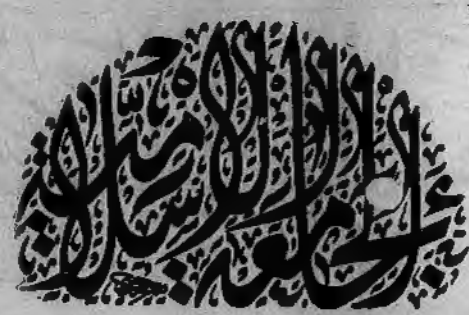 الجامعة الاسلامية